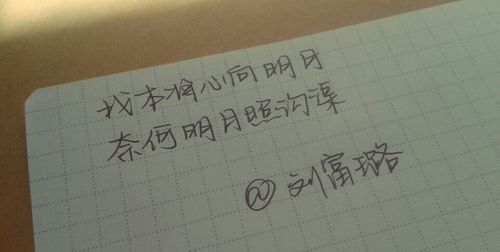 我本将心向明月
奈何明月照沟渠
@刘富璐